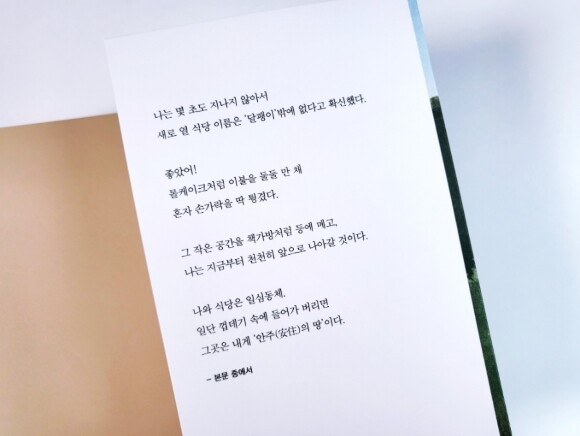 나는 몇 초도 지나지 않아서
새로 열 식당 이름은 '달팽이'밖에 없다고 확신했다.
좋았어!
롤케이크처럼 이불을 둘둘 만 채
혼자 손가락을 딱 튕겼다.
그 작은 공간을 책가방처럼 등에 메고,
나는 지금부터 천천히 앞으로 나아갈 것이다.
나와 식당은 일심동체.
일단 껍데기 속에 들어가 버리면
그곳은 내게 '안주(安住)의 땅'이다.
– 본문 중에서